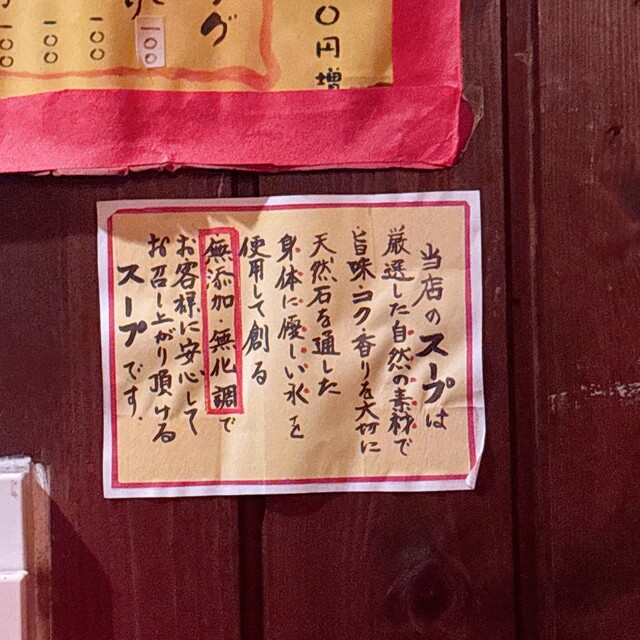 〇円増
グ
一〇〇
当店のスープは
厳選した自然の素材で
旨味・コク・香りを大切に
天然石を通した
身体に優しい水を
使用して創る
無添加 無化調で
お客様に安心して
お召し上がり頂ける
スープです。